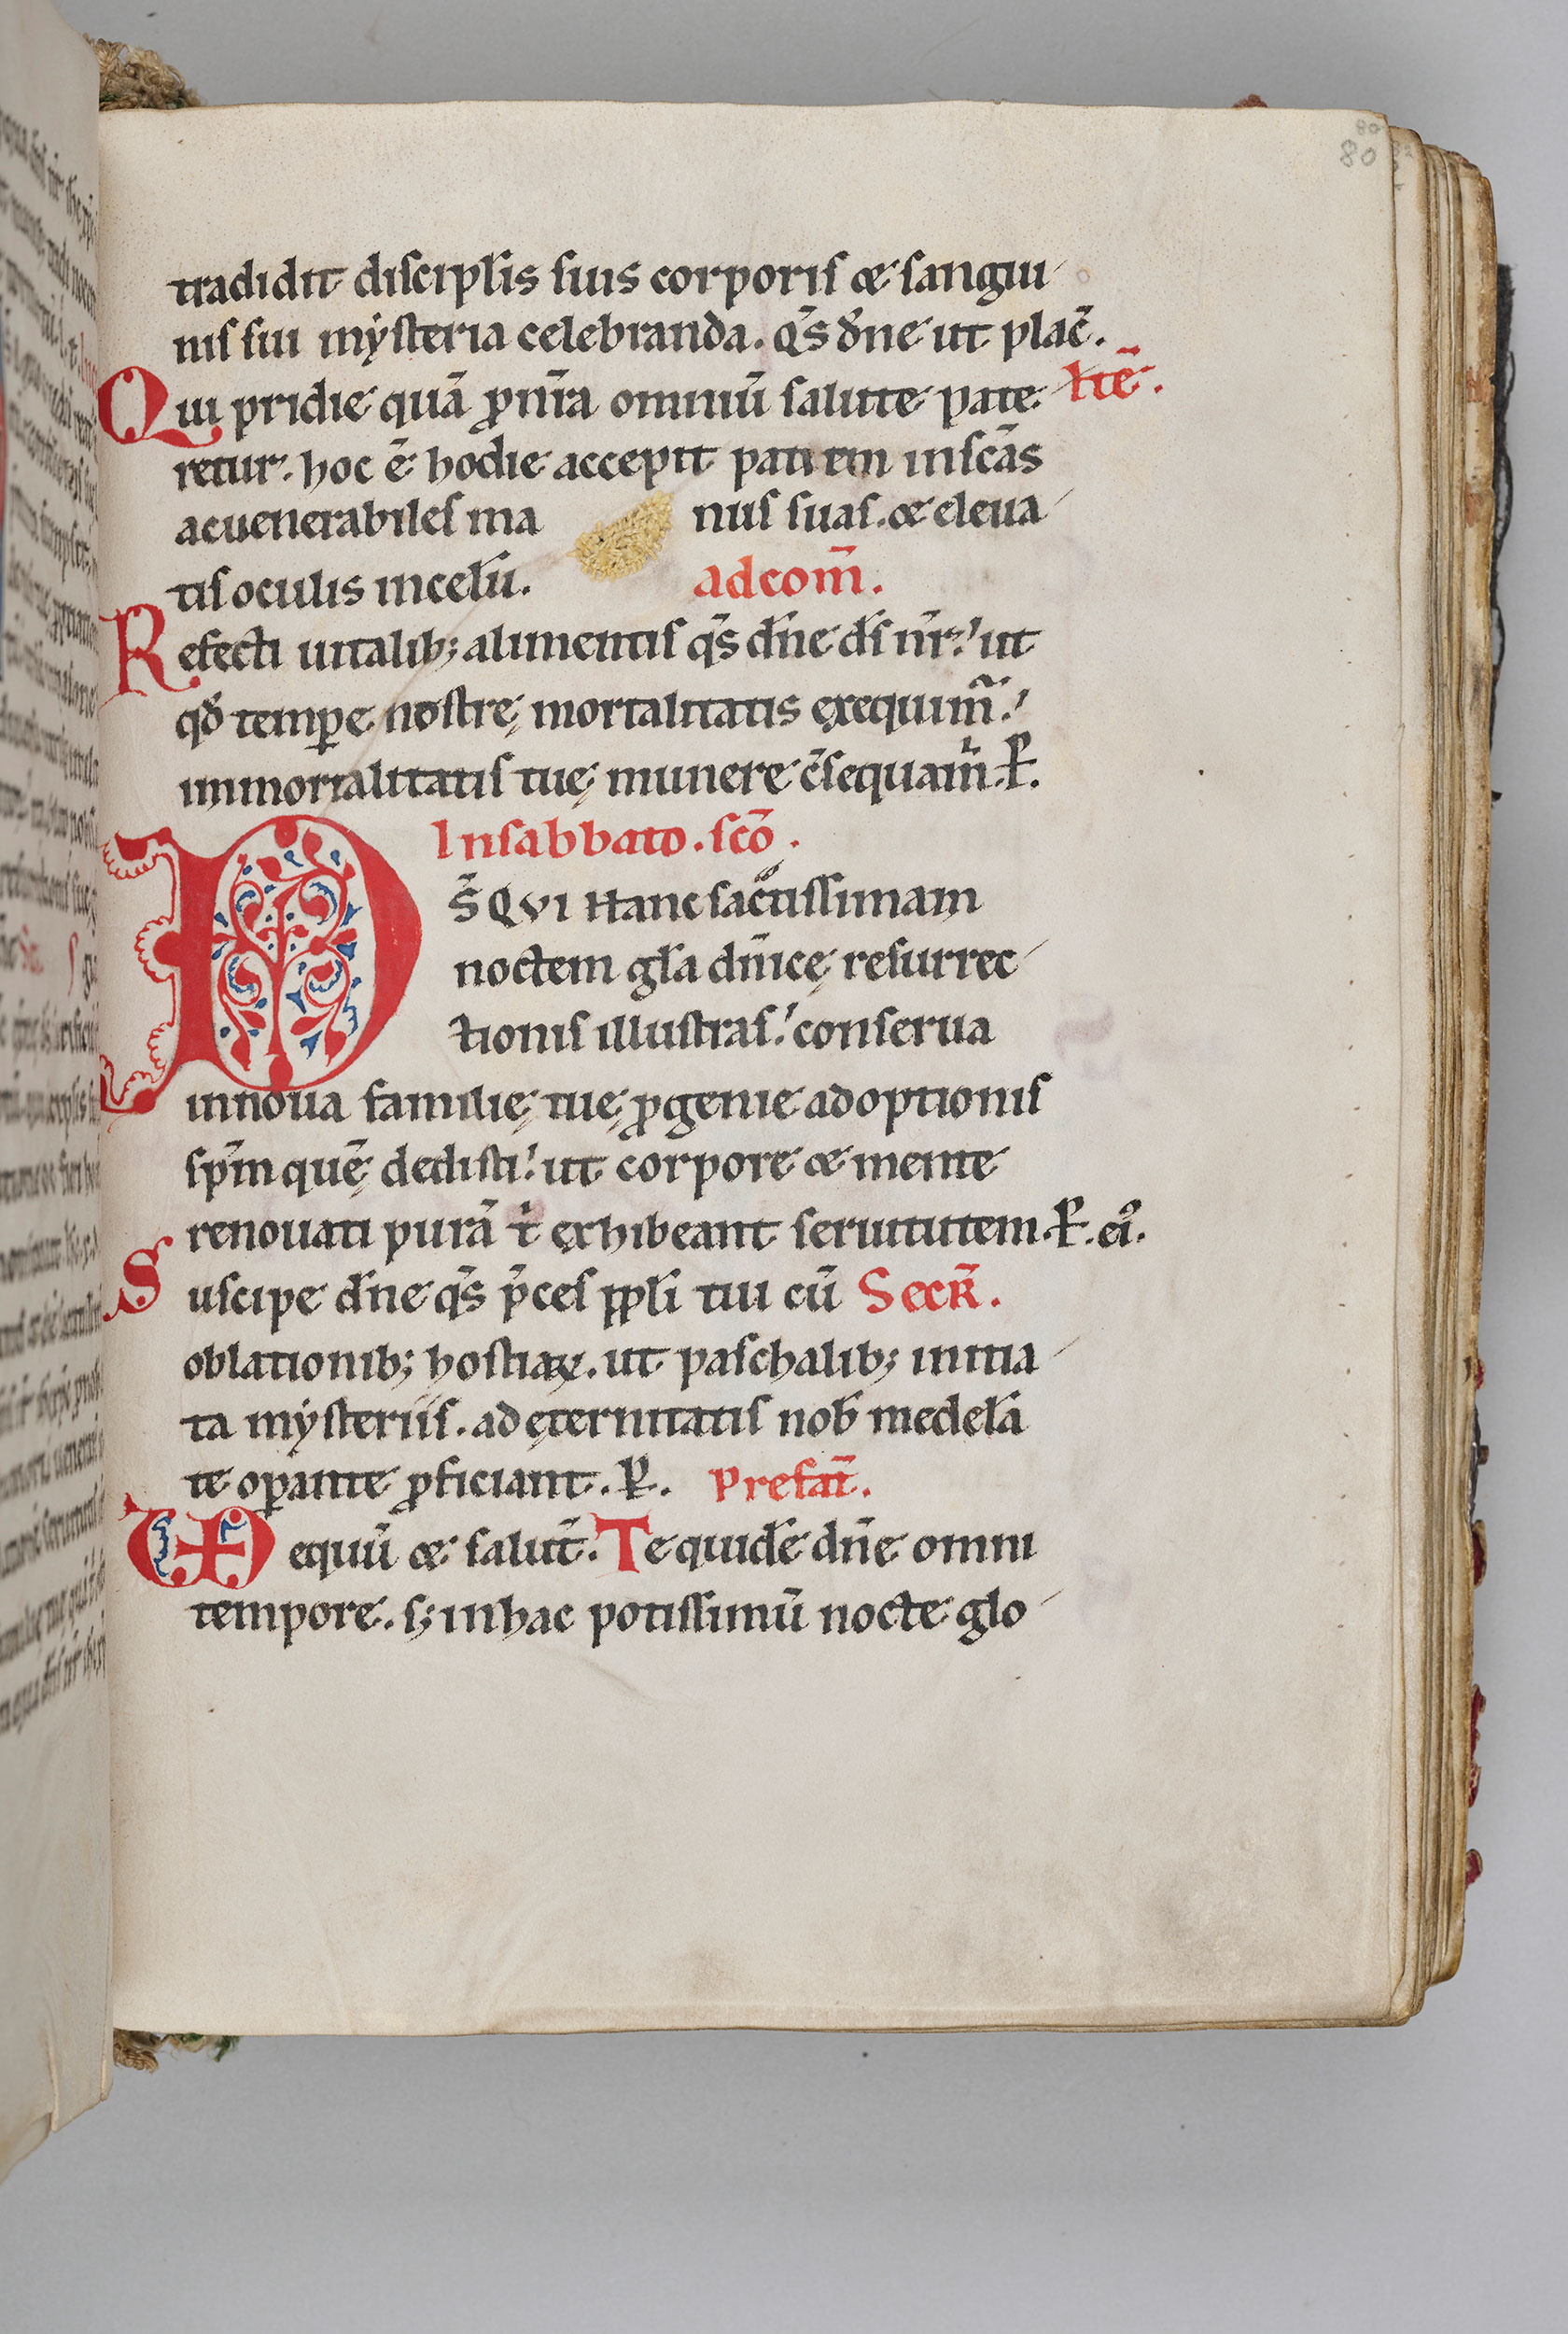 80
80
tradidit discipl̄is suis corporis & sangui
nis sui mysteria celebranda. Q̄s d̄ne ut plac̄.
Qui pridie quā ꝓ nr̄a omniū salute pate It̄ē.
retur. hoc ē hodie accepit panem in sc̄as
ac uenerabiles ma nus suas. & eleua
tis oculis in celū. ad com̄.
Refecti uitalib; alimentis q̄s dn̄e ds̄ nr̄. ut
qđ tempꝑe nostrę mortalitatis exequim̄.
immortalitatis tuę munere c̄sequam̄. P̄.
In sabbato. sc̄o.
D
S̄ QVI Hanc sac̄tissimam
noctem gl̄a dn̄icę resurrec
tionis illustras. conserua
in noua familię tuę ꝓgenie adoptionis
sp̄m quē dedisti. ut corpore & mente
renouati purā t̄ exhibeant seruitutem. P̄. ei.
Suscipe dn̄e q̄s p̄ces ppl̄i tui cū Secr̄.
oblationib; hostiaꝝ. ut paschalib; initia
ta mysteriis. ad ęternitatis nob̄ medelā
te oꝑante ꝓficiant. P̄. Prefat̄.
VD equū & salut̄. Te quidē dn̄e omni
tempore. s; in hac potissimū nocte glo